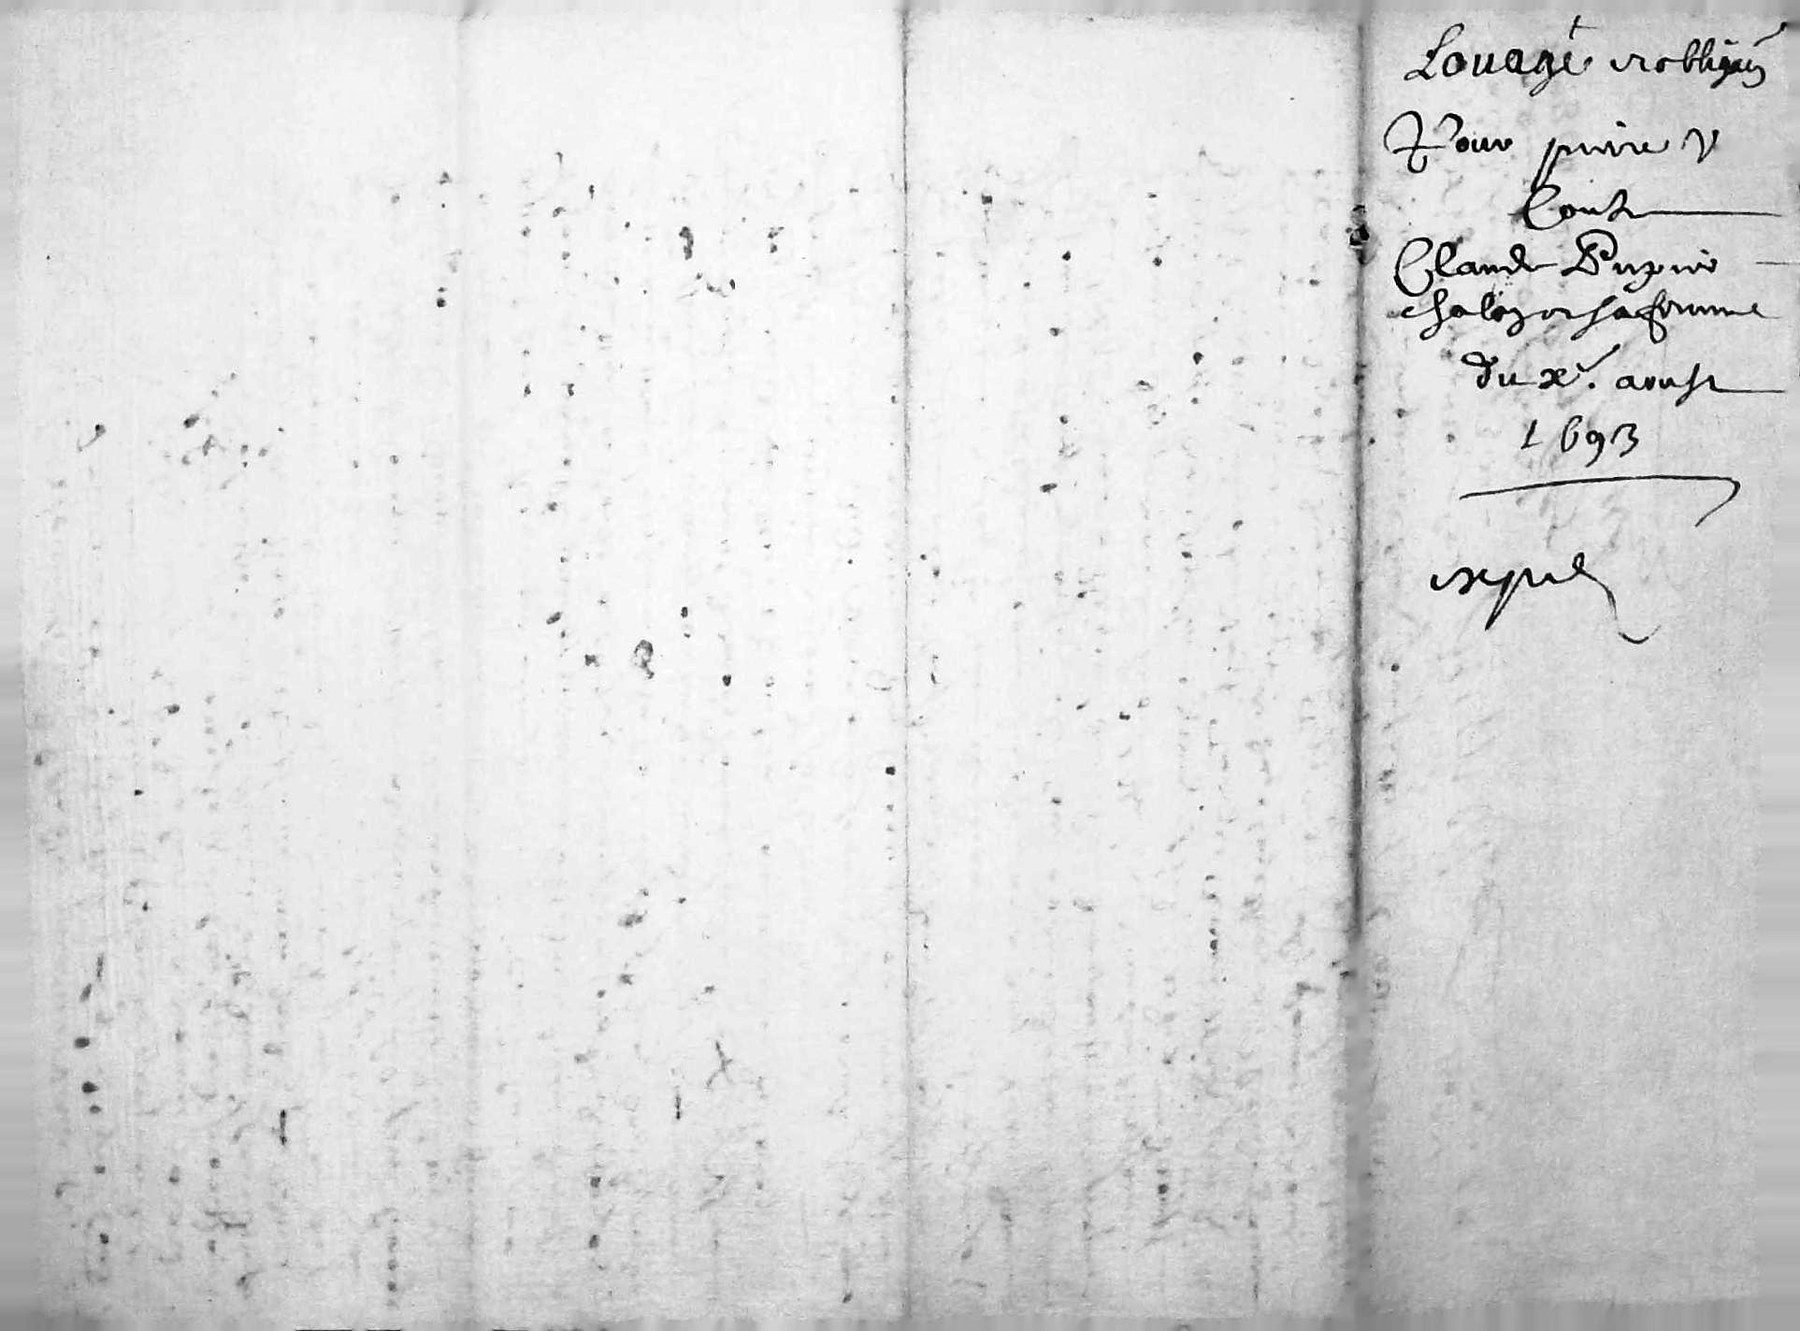 Louage et obliga͠on
Pour pierre V
Contre
Claude Dupuis
et sa femme
du xe. aoust
1693
expedié